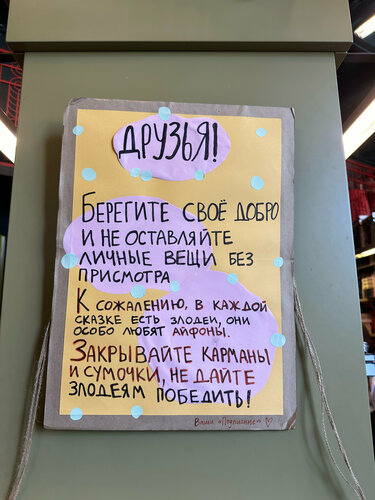 ДРУЗЬЯ!
БЕРЕГИТЕ СВОЁ ДОБРО
И НЕ ОСТАВЛЯЙТЕ
ЛИЧНЫЕ ВЕЩИ БЕЗ
ПРИСМОТРА
К СОЖАЛЕНИЮ, В КАЖДОЙ
СКАЗКЕ ЕСТЬ ЗЛОДЕИ, ОНИ
ОСОБО ЛЮБЯТ АЙФОНЫ.
ЗАКРЫВАЙТЕ КАРМАНЫ
И СУМОЧКИ, НЕ ДАЙТЕ
ЗЛОДЕЯМ ПОБЕДИТЬ!
Ваши «Подписные» ♡